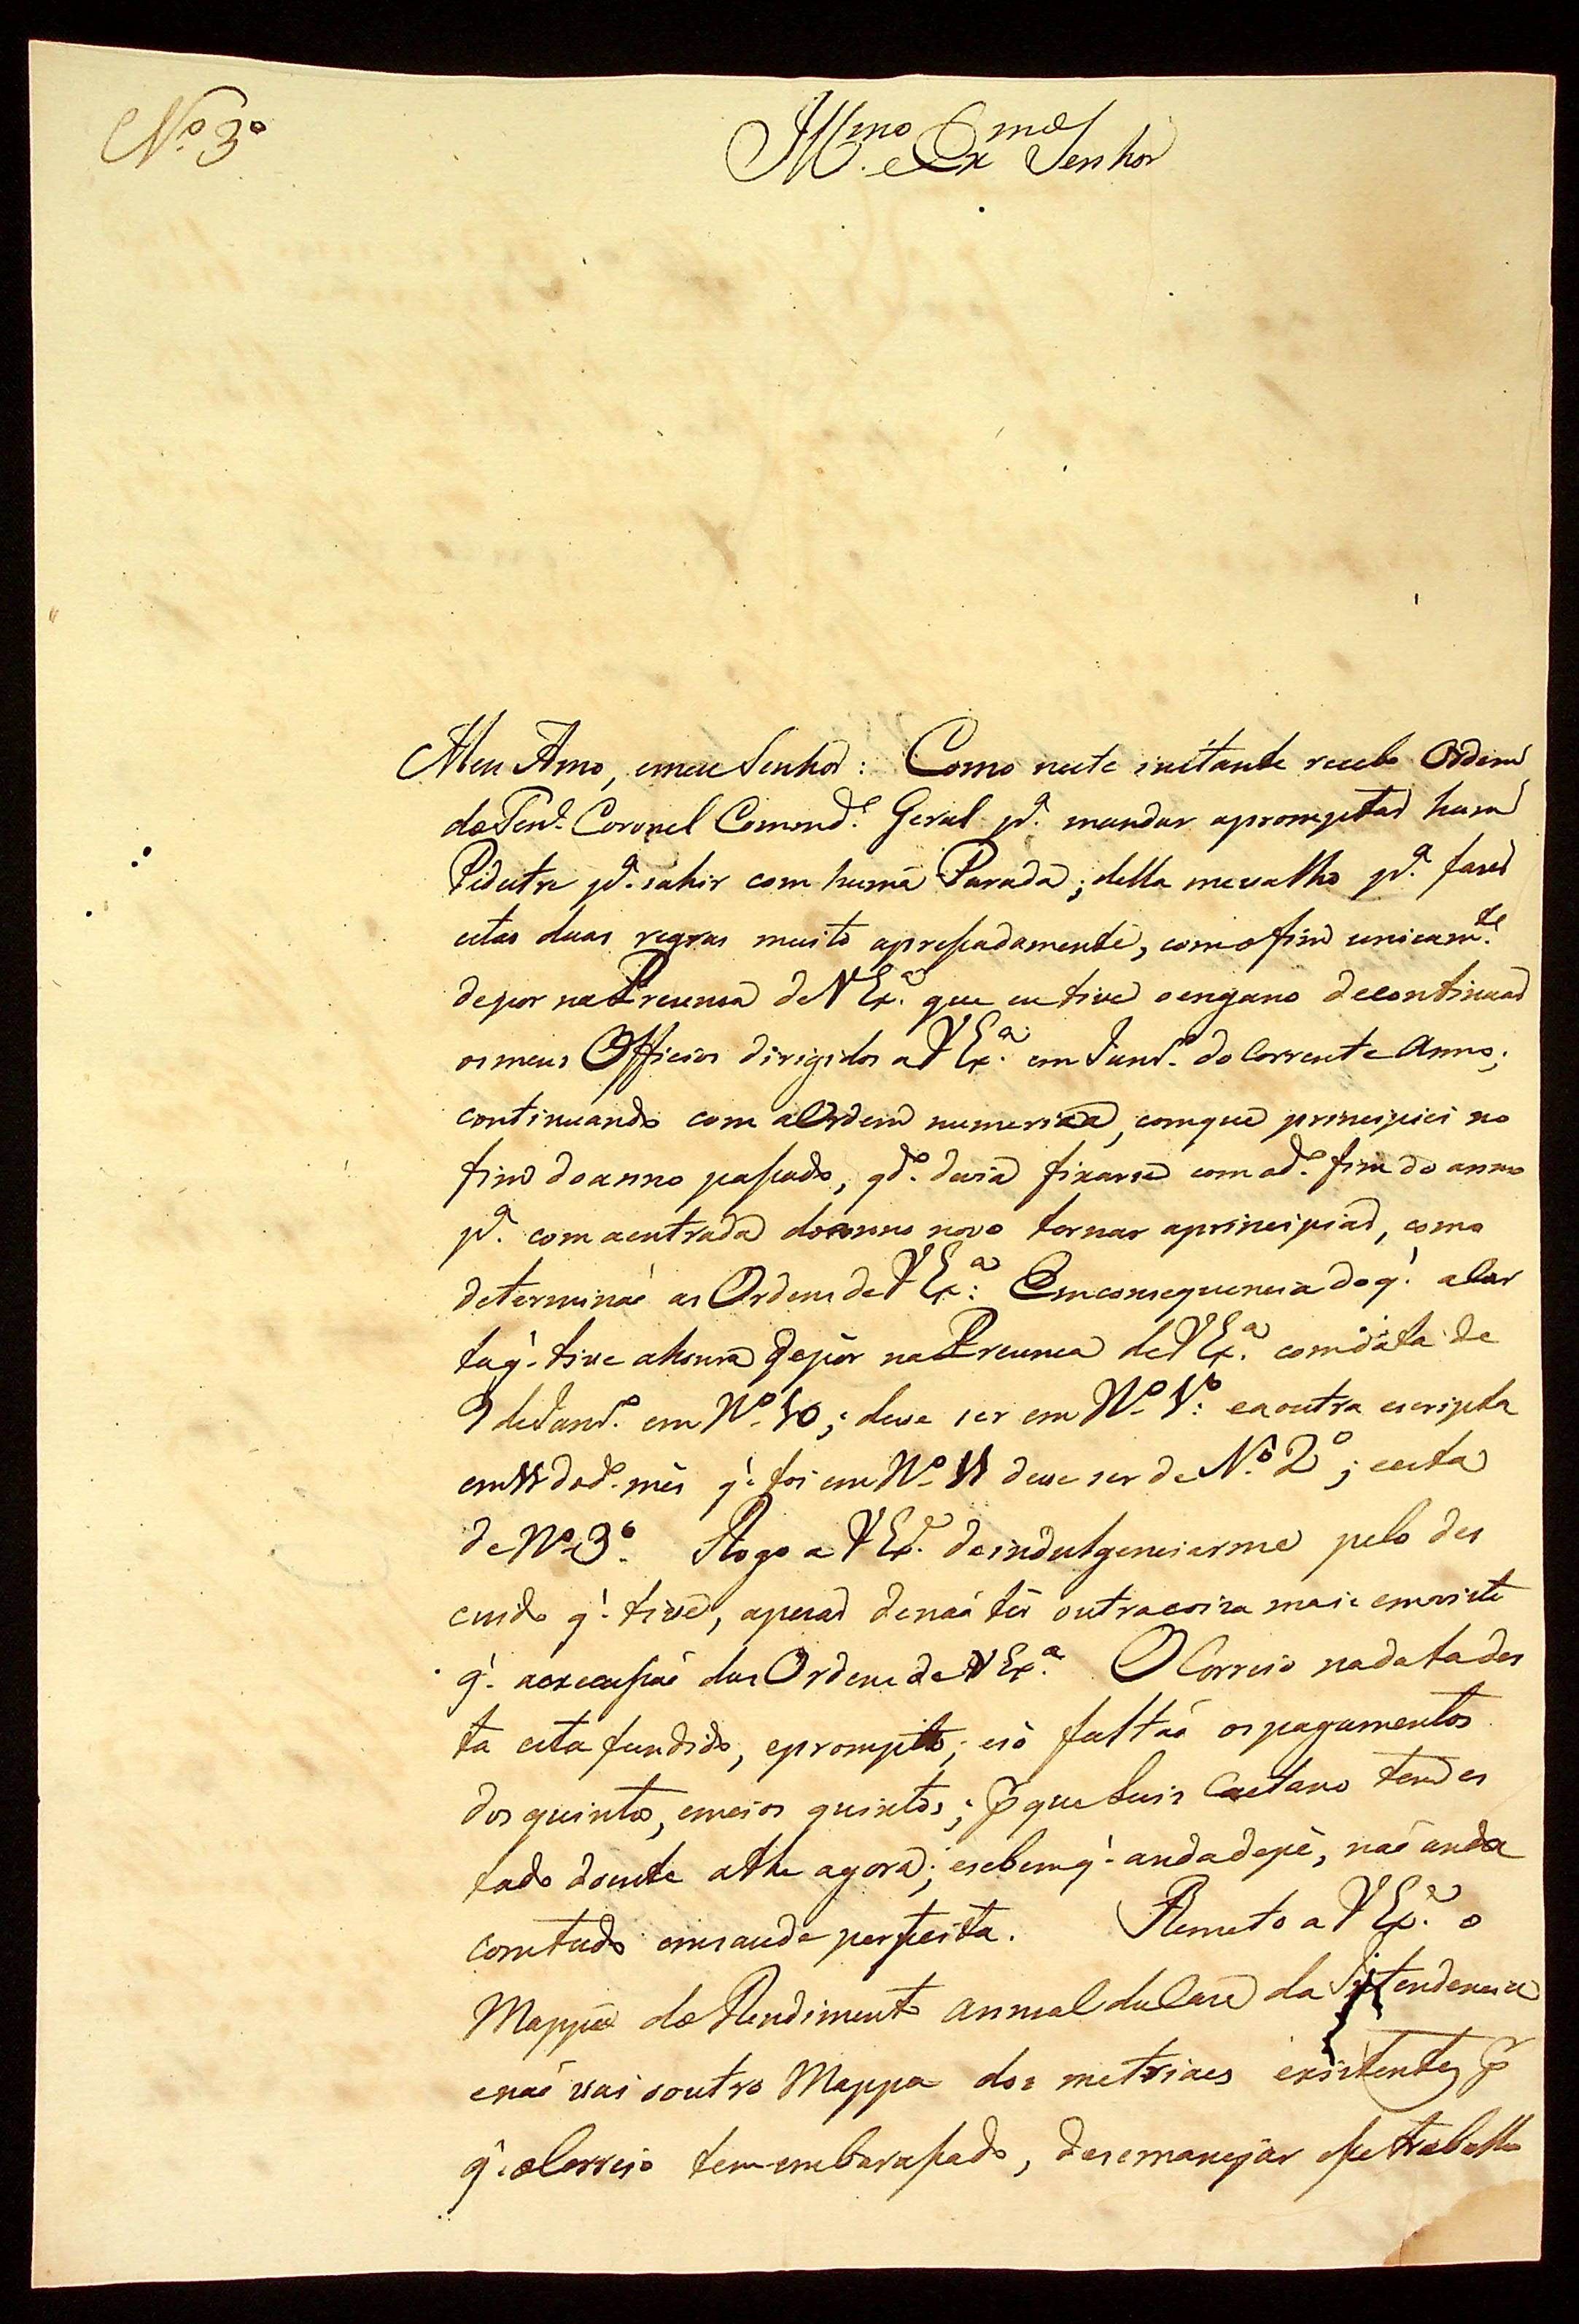 No. 3o
Illmo. e Exmo Senhor
Meu Amo, emeu Senhor: Como neste instante recebo Ordem
do Tene. Coronel Comende. Geral pa. mandar apromptar hum
Pedestre pa. sahir com huma Parada; della mevalho pa. fazer
estas duas regras muito apressadamente, comofim unicamte.
depor na Presensa de V Exa. que eu tive oengano decontinuar
osmeus Officios dirigidos a V Exa. em Janro. do Corrente Anno;
continuando com aOrdem numerica, comque principiei no
fim doanno passado, qdo. devia fixarse com odo. fim do anno
pa. com aentrada doanno novo tornar aprincipiar, como
determinaõ as Ordens de V Exa: Emconsequencia do q' a Car
taq' tive ahonra depôr na Presença de V Exa. comdata de
9 de Janro. em No. 10; deve ser em No. 1o: eaoutra escripta
em 11 dodo. mês q' foi em No. 11 deve ser de No. 2o; eesta
de No. 3o. Rogo a V Exa. deindulgenciarme pelo des
cuido q' tive, apesar denaõ têr outracoisa mais emvista
q' aexecussaõ das Ordens de V Exa. OCorreio nadatades
ta esta fundido, eprompto; esó faltaõ ospagamentos
dos quintos, emeios quintos; p que Luis Caetano tem es
tado doente athe agora; esebemq' andadepé, naõ anda
comtudo emsaude perfeita. Remeto a V Exa. o
Mappa do Rendimento annual da Casa da Intendencia
enaõ vai ooutro Mappa dos metriaes existentes p
q' oCorreio tem embarassado, desemanejar esse trabalho